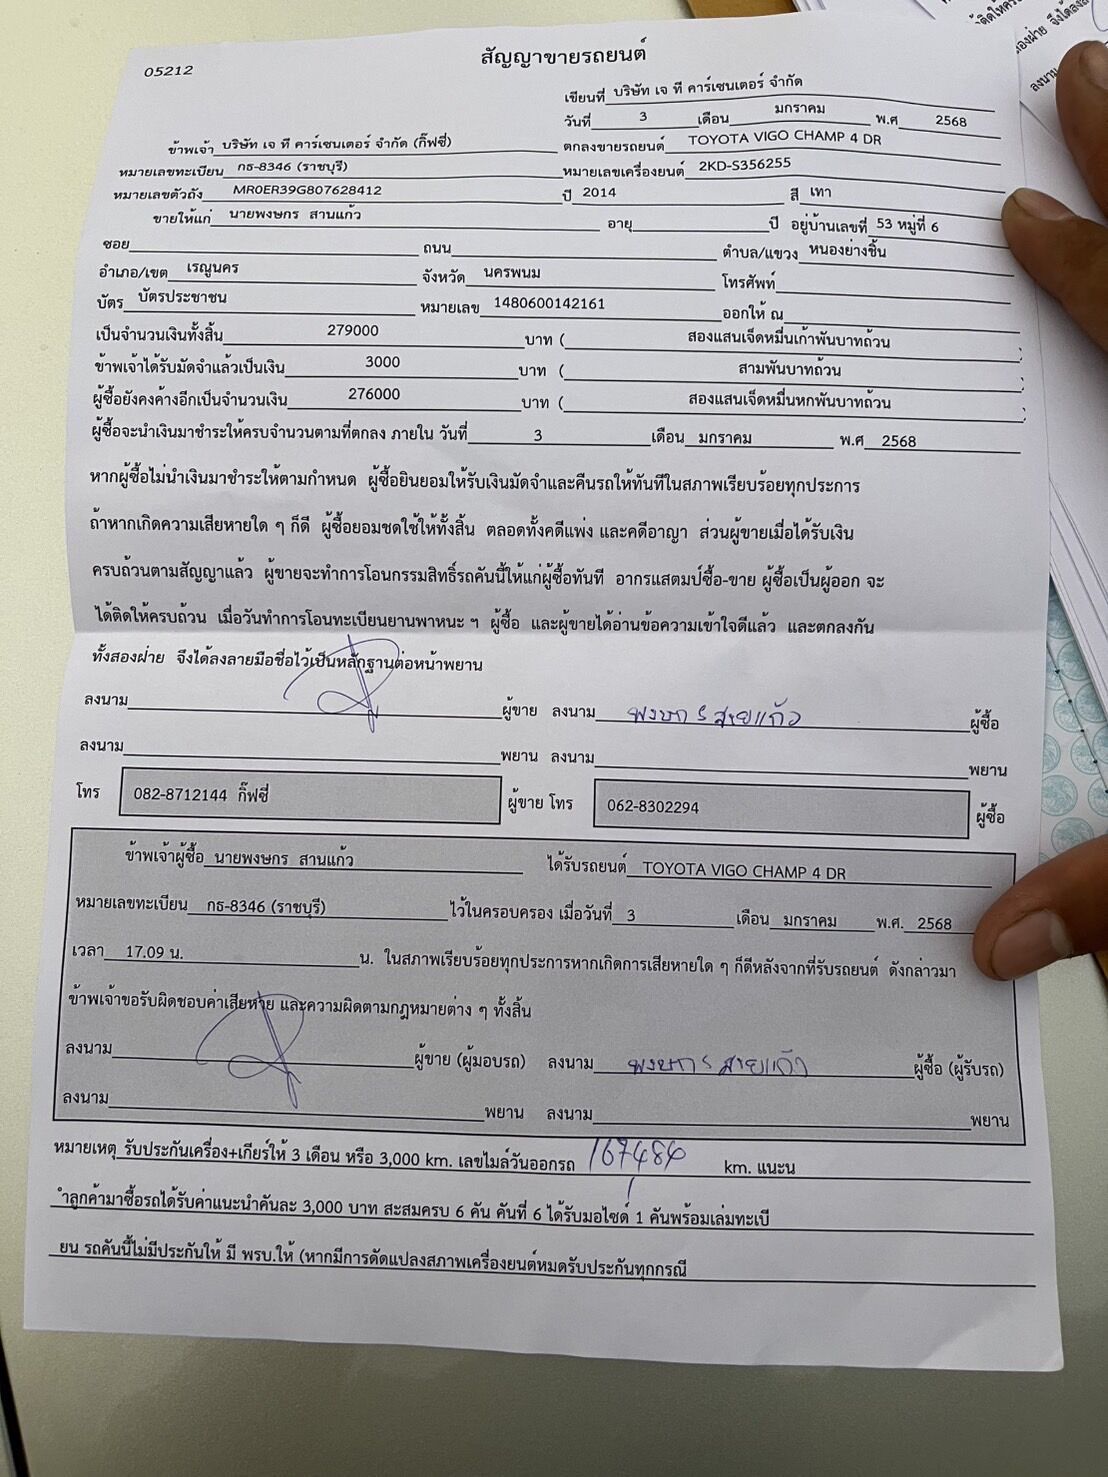 05212
สัญญาขายรถยนต์
เขียนที่ บริษัท เจ ที คาร์เซนเตอร์ จำกัด
วันที่ 3 เดือน มกราคม พ.ศ 2568
ข้าพเจ้า บริษัท เจ ที คาร์เซนเตอร์ จำกัด (กิ๊ฟซี่) ตกลงขายรถยนต์ TOYOTA VIGO CHAMP 4 DR
หมายเลขทะเบียน กธ-8346 (ราชบุรี) หมายเลขเครื่องยนต์ 2KD-S356255
หมายเลขตัวถัง MR0ER39G807628412 ปี 2014 สี เทา
ขายให้แก่ นายพงษกร สานแก้ว อายุ ปี อยู่บ้านเลขที่ 53 หมู่ที่ 6
ซอย ถนน ตำบล/แขวง หนองย่างชิ้น
อำเภอ/เขต เรณูนคร จังหวัด นครพนม โทรศัพท์
บัตร บัตรประชาชน หมายเลข 1480600142161 ออกให้ ณ
เป็นจำนวนเงินทั้งสิ้น 279000 บาท ( สองแสนเจ็ดหมื่นเก้าพันบาทถ้วน )
ข้าพเจ้าได้รับมัดจำแล้วเป็นเงิน 3000 บาท ( สามพันบาทถ้วน )
ผู้ซื้อยังคงค้างอีกเป็นจำนวนเงิน 276000 บาท ( สองแสนเจ็ดหมื่นหกพันบาทถ้วน )
ผู้ซื้อจะนำเงินมาชำระให้ครบจำนวนตามที่ตกลง ภายใน วันที่ 3 เดือน มกราคม พ.ศ 2568
หากผู้ซื้อไม่นำเงินมาชำระให้ตามกำหนด ผู้ซื้อยินยอมให้รับเงินมัดจำและคืนรถให้ทันทีในสภาพเรียบร้อยทุกประการ
ถ้าหากเกิดความเสียหายใด ๆ ก็ดี ผู้ซื้อยอมชดใช้ให้ทั้งสิ้น ตลอดทั้งคดีแพ่ง และคดีอาญา ส่วนผู้ขายเมื่อได้รับเงิน
ครบถ้วนตามสัญญาแล้ว ผู้ขายจะทำการโอนกรรมสิทธิ์รถคันนี้ให้แก่ผู้ซื้อทันที อากรแสตมป์ซื้อ-ขาย ผู้ซื้อเป็นผู้ออก จะ
ได้ติดให้ครบถ้วน เมื่อวันทำการโอนทะเบียนยานพาหนะ ฯ ผู้ซื้อ และผู้ขายได้อ่านข้อความเข้าใจดีแล้ว และตกลงกัน
ทั้งสองฝ่าย จึงได้ลงลายมือชื่อไว้เป็นหลักฐานต่อหน้าพยาน
ลงนาม ผู้ขาย ลงนาม พงษกร สายแก้ว ผู้ซื้อ
ลงนาม พยาน ลงนาม พยาน
โทร 082-8712144 กิ๊ฟซี่ ผู้ขาย โทร 062-8302294 ผู้ซื้อ
ข้าพเจ้าผู้ซื้อ นายพงษกร สานแก้ว ได้รับรถยนต์ TOYOTA VIGO CHAMP 4 DR
หมายเลขทะเบียน กธ-8346 (ราชบุรี) ไว้ในครอบครอง เมื่อวันที่ 3 เดือน มกราคม พ.ศ. 2568
เวลา 17.09 น. น. ในสภาพเรียบร้อยทุกประการหากเกิดการเสียหายใด ๆ ก็ดีหลังจากที่รับรถยนต์ ดังกล่าวมา
ข้าพเจ้าขอรับผิดชอบค่าเสียหาย และความผิดตามกฎหมายต่าง ๆ ทั้งสิ้น
ลงนาม ผู้ขาย (ผู้มอบรถ) ลงนาม พงษกร สายแก้ว ผู้ซื้อ (ผู้รับรถ)
ลงนาม พยาน ลงนาม พยาน
หมายเหตุ รับประกันเครื่อง+เกียร์ให้ 3 เดือน หรือ 3,000 km. เลขไมล์วันออกรถ 167484 km. แนะน
ำลูกค้ามาซื้อรถได้รับค่าแนะนำคันละ 3,000 บาท สะสมครบ 6 คัน คันที่ 6 ได้รับมอไซด์ 1 คันพร้อมเล่มทะเบี
ยน รถคันนี้ไม่มีประกันให้ มี พรบ.ให้ (หากมีการดัดแปลงสภาพเครื่องยนต์หมดรับประกันทุกกรณี